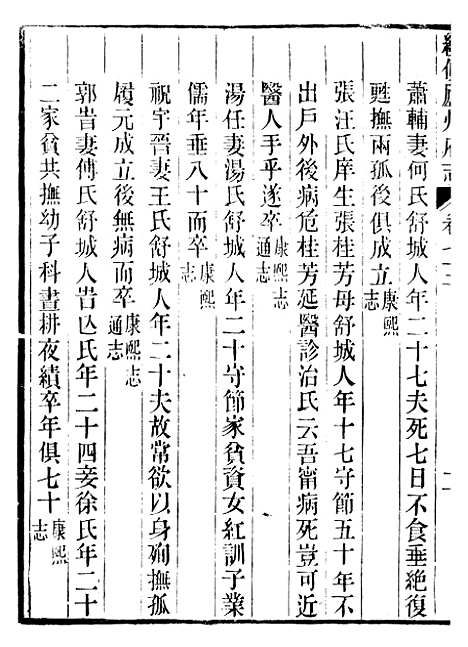 續修廬州府志 卷七十
蕭輔妻何氏舒城人年二十七夫死七日不食垂絶復
甦撫兩孤後俱成立康熙志
張汪氏庠生張桂芳母舒城人年十七守節五十年不
出戶外後病危桂芳延醫診治氏云吾甯病死豈可近
醫人手乎遂卒康熙志通志
湯任妻湯氏舒城人年二十守節家貧資女紅訓子業
儒年垂八十而卒康熙志
祝宇晉妻王氏舒城人年二十夫故常欲以身殉撫孤
履元成立後無病而卒康熙志通志
郭昔妻傅氏舒城人昔亾氏年二十四妾徐氏年二十
二家貧共撫幼子科晝耕夜績卒年俱七十康熙志